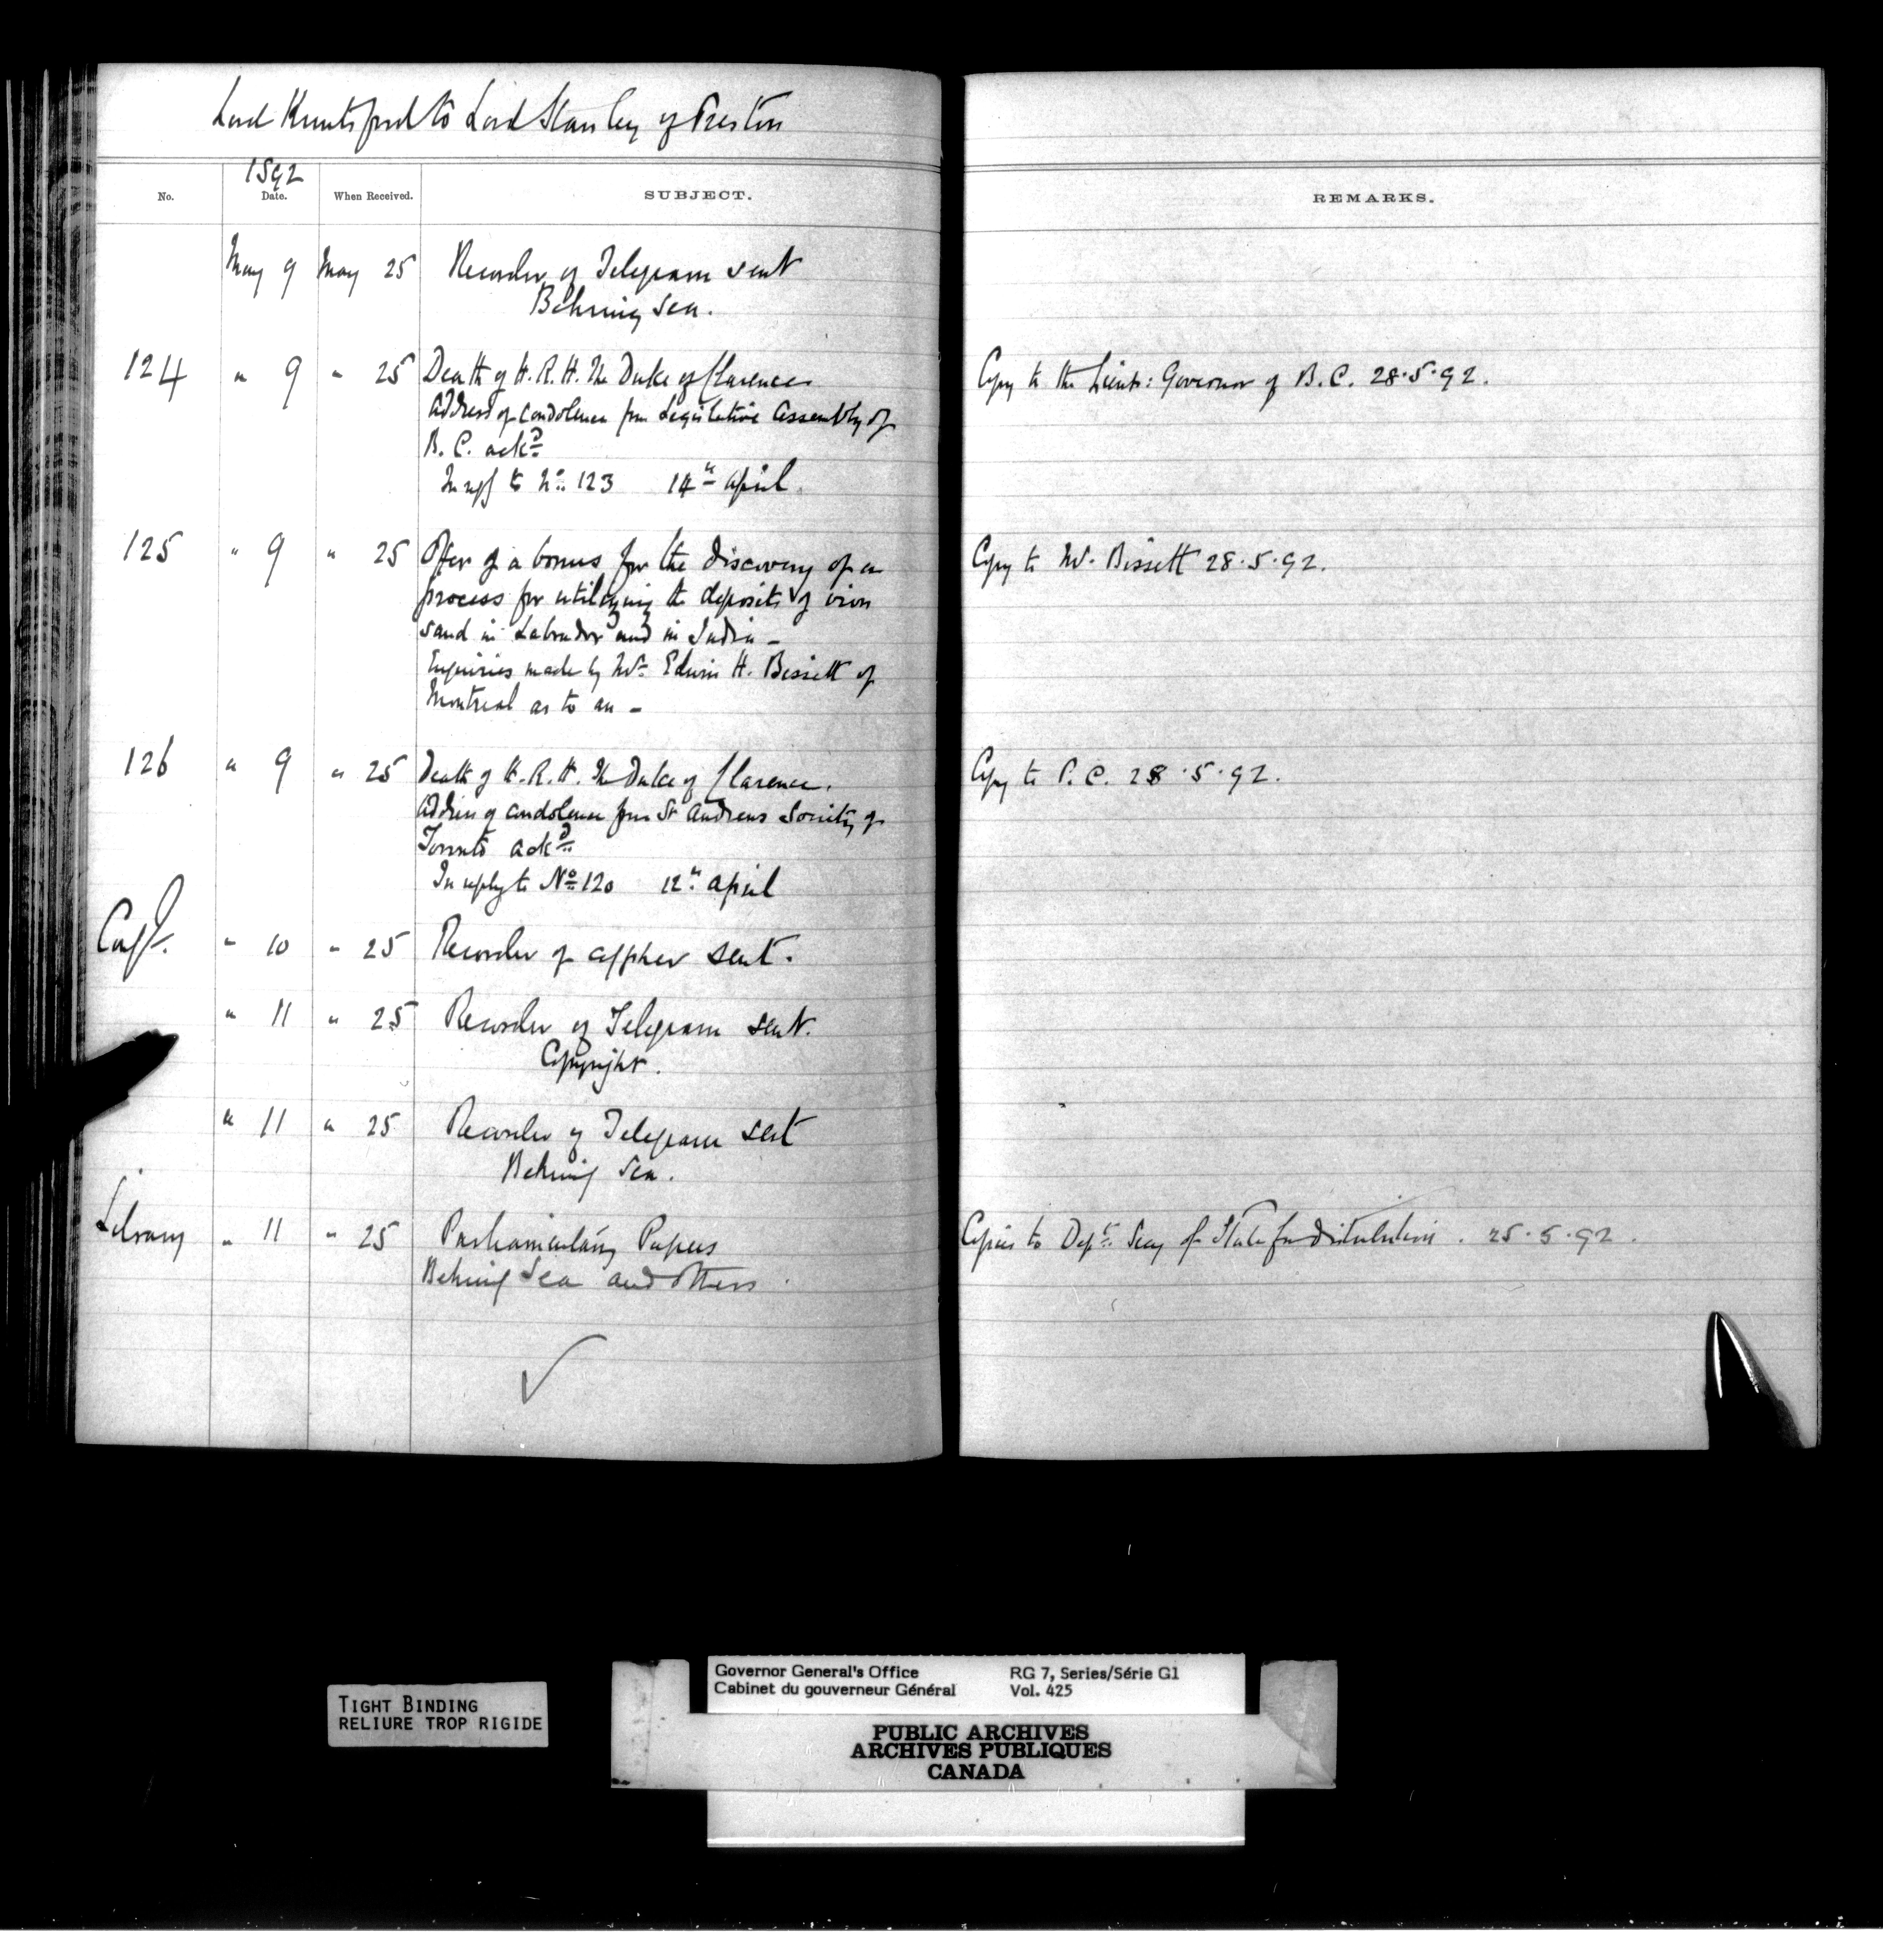 Lord Knutsford to Lord Stanley of Preston
1892
No. Date. When Received. SUBJECT. REMARKS.
May 9 May 25 Recorder of Telegram sent
Behring Sea.
124 " 9 " 25 Death of H.R.H. The Duke of Clarence Copy to the Lieut: Governor of B.C. 28.5.92.
Address of Condolence from Legislative Assembly of
B.C. ackd
In reply to No 123 14th April
125 " 9 " 25 Offer of a bonus for the discovery of a Copy to Mr. Bissett 28.5.92.
process for utilizing the deposits of iron
sand in Labrador and in India -
Enquiries made by Mr Edwin H. Bissett of
Montreal as to an -
126 " 9 " 25 Death of H.R.H. The Duke of Clarence. Copy to P.C. 28.5.92.
Address of condolence from St Andrews Society of
Toronto ackd
In reply to No 120 12th April
Conft. " 10 " 25 Recorder of cypher sent.
" 11 " 25 Recorder of Telegram sent.
Copyright.
" 11 " 25 Recorder of Telegram sent
Behring Sea.
Library " 11 " 25 Parliamentary Papers Copies to Dept. Secy of State for distribution. 25.5.92.
Behring Sea and others.
TIGHT BINDING
RELIURE TROP RIGIDE
Governor General's Office RG 7, Series/Série G1
Cabinet du gouverneur Général Vol. 425
PUBLIC ARCHIVES
ARCHIVES PUBLIQUES
CANADA